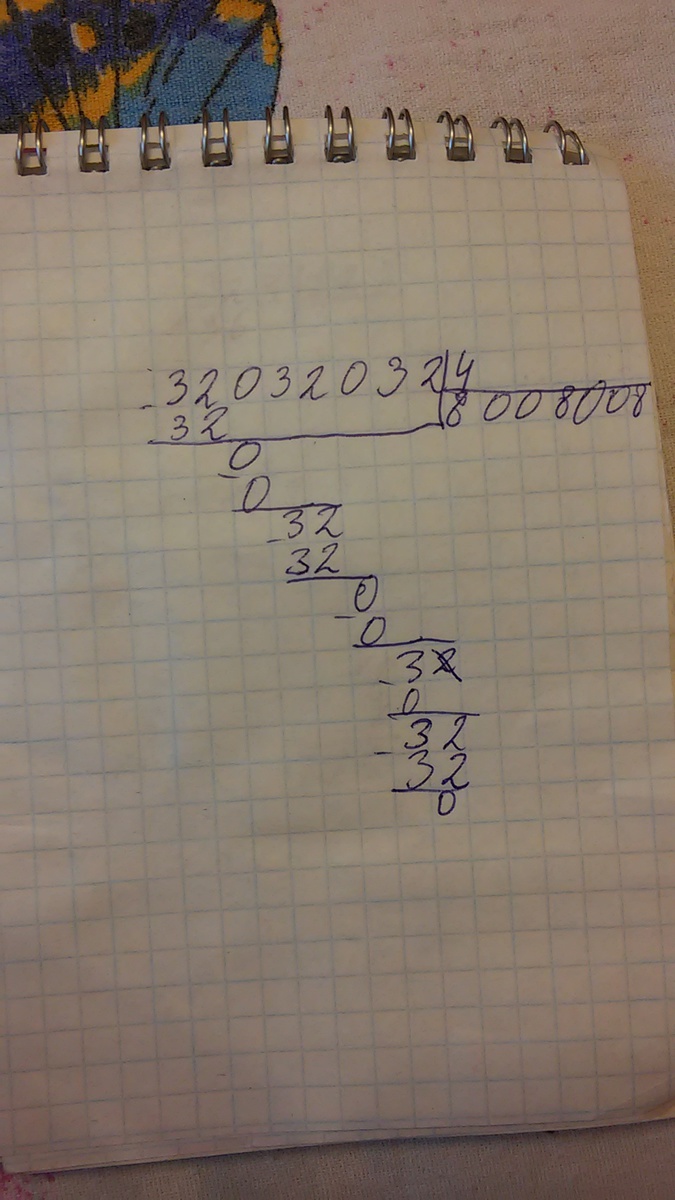 32032032 4
32 8008008
0
0
32
32
0
0
3
0
32
32
0